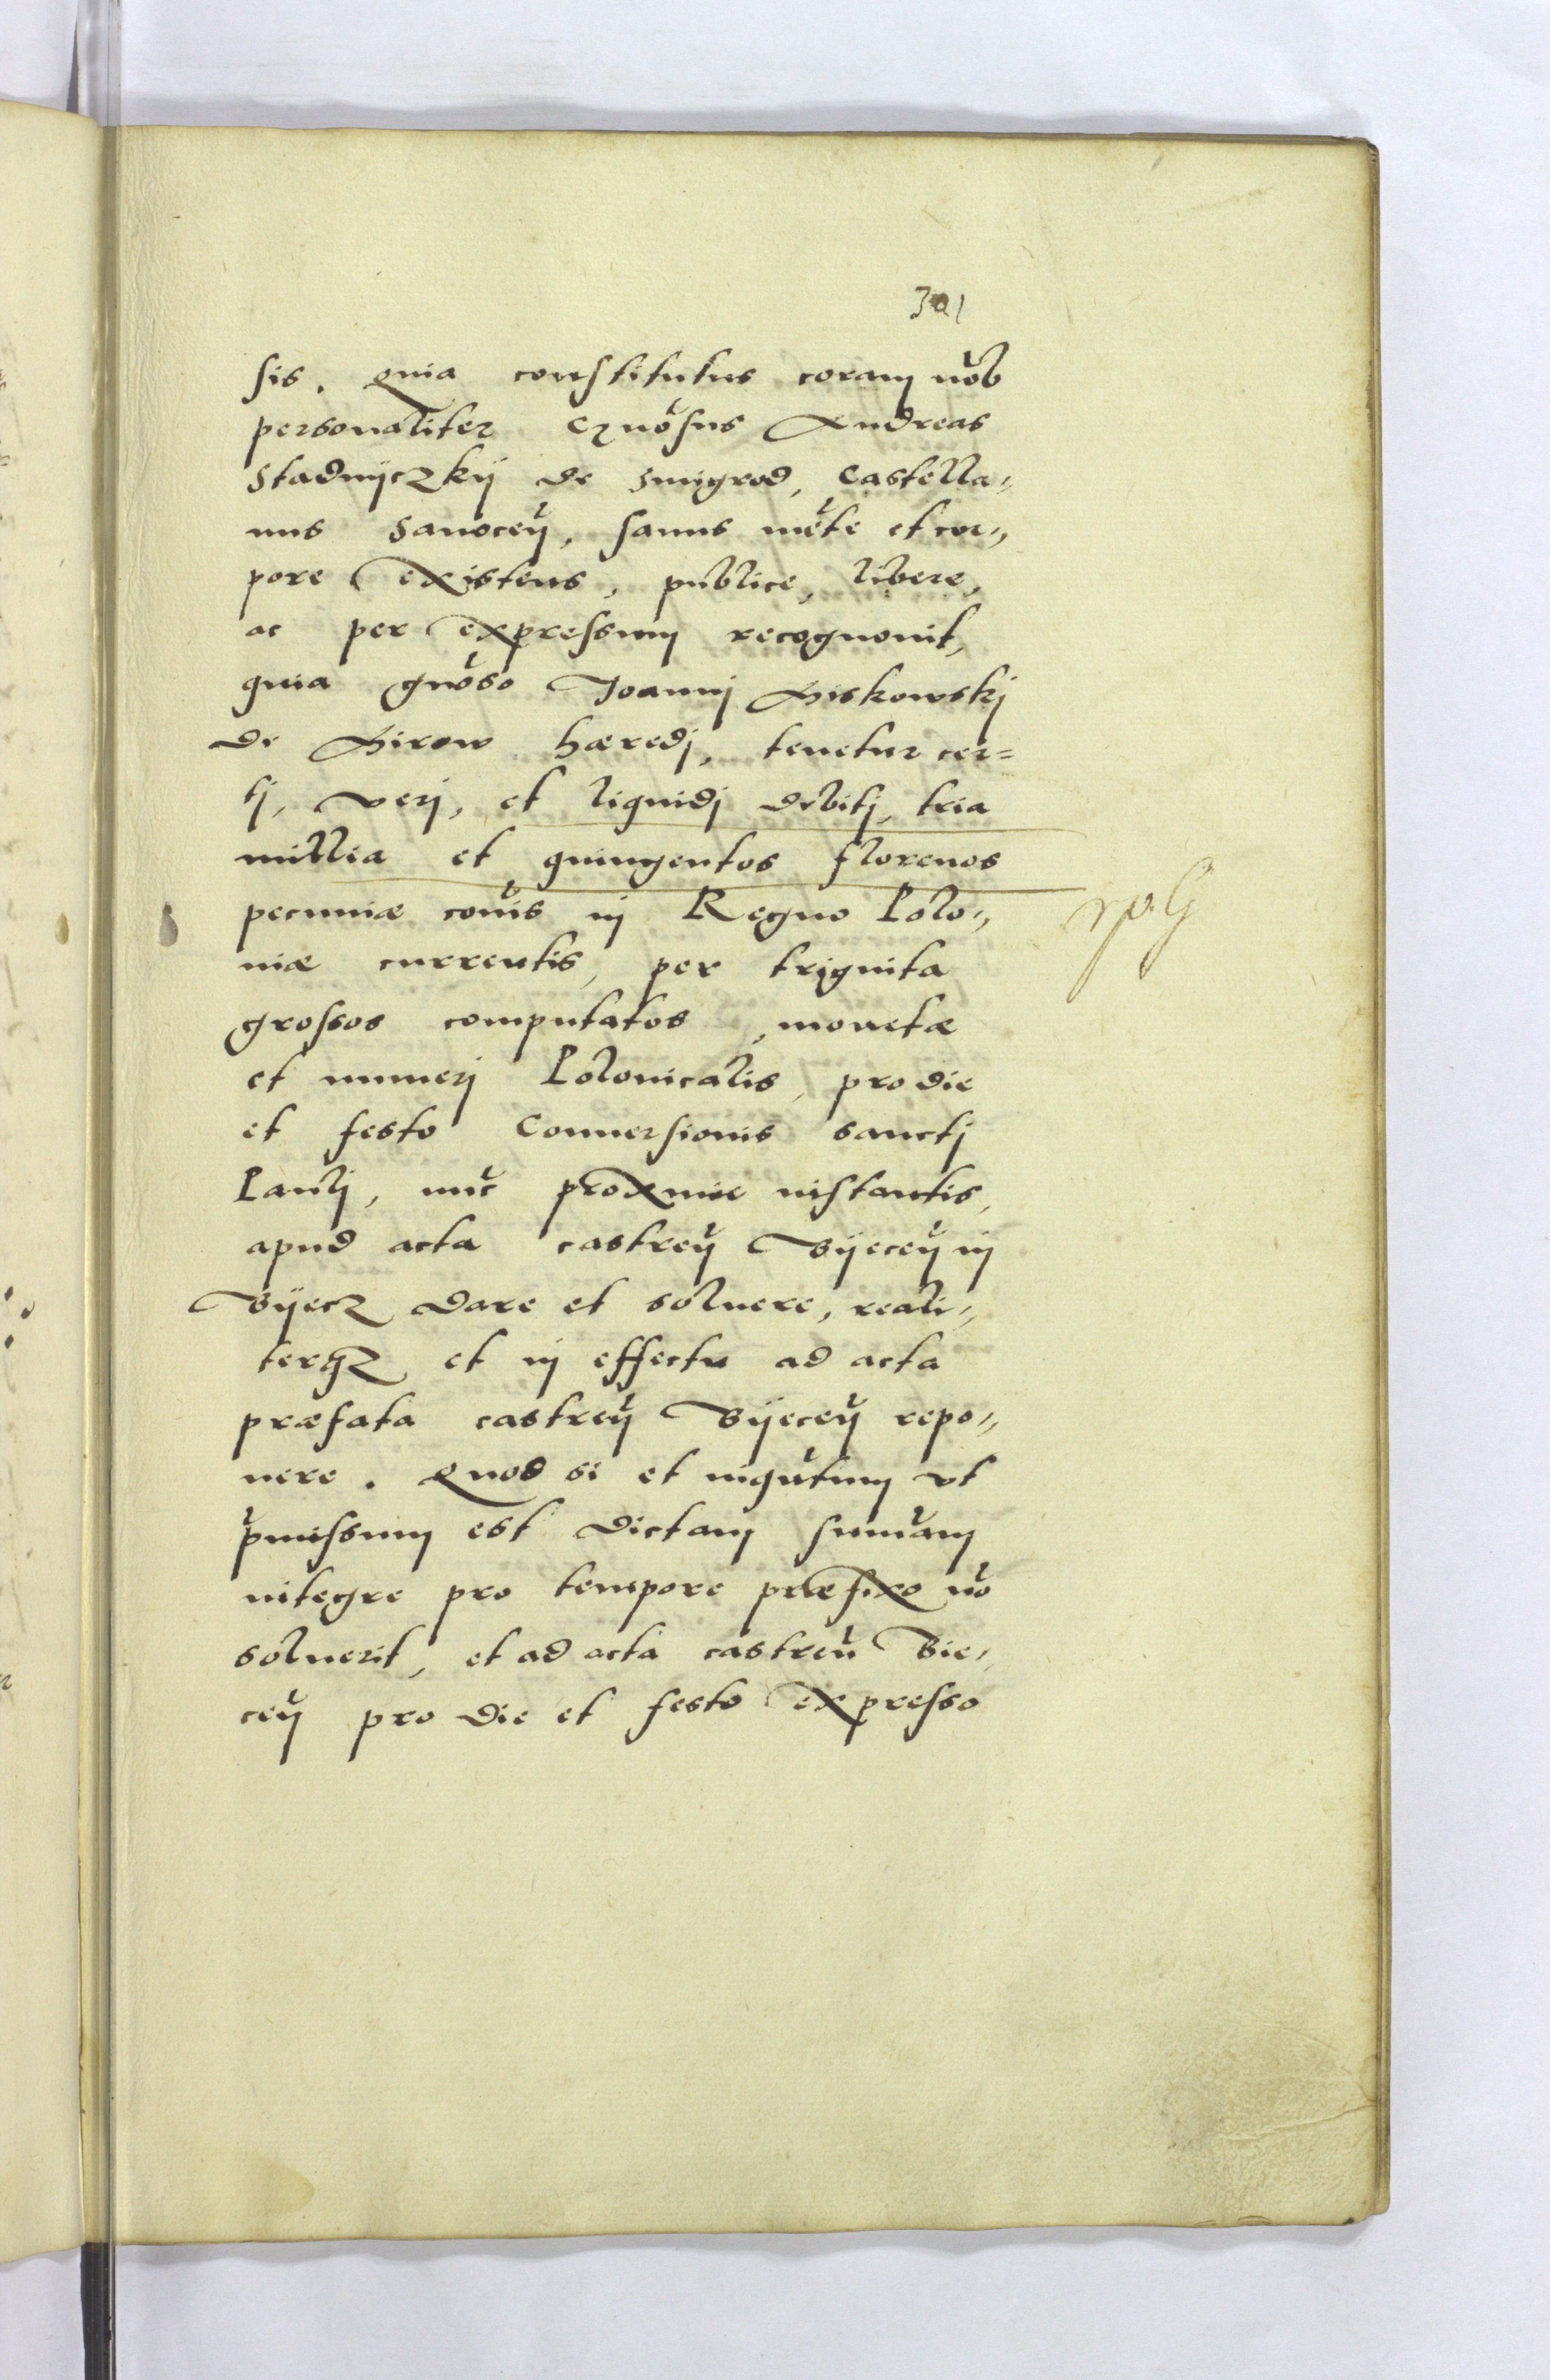 301
sis. Quia constitutus coram nob
personaliter Gnosus Andreas
Stadnÿczkÿ de Zmigrod, Castella„
nus Sanocen, sanus mete et cor„
pore existens, publice, libere,
ac per expressum recognouit,
quia gnoso Joannj Siskowskj
de Sirow hæredj, tenetur cer=
tj, verj, et liquidj debitj, tria
millia et quingentos florenos
pecuniæ cois in Regno Polo„
niæ currentis, per triginta
grossos computatos, monetæ
et numerj Polonicalis, pro die
et festo Conuersionis sanctj
Paulj, nuc proxime instantis,
apud acta castren Bÿecen in
Bÿecz dare et soluere, reali„
terqz et in effectu ad acta
præfata castren Bÿecen repo„
nere. Quod si et inqutum vt
pmissum est dictam sumam
integre pro tempore præfixo no
soluerit, et ad acta castren Bie„
cen pro die et festo expresso